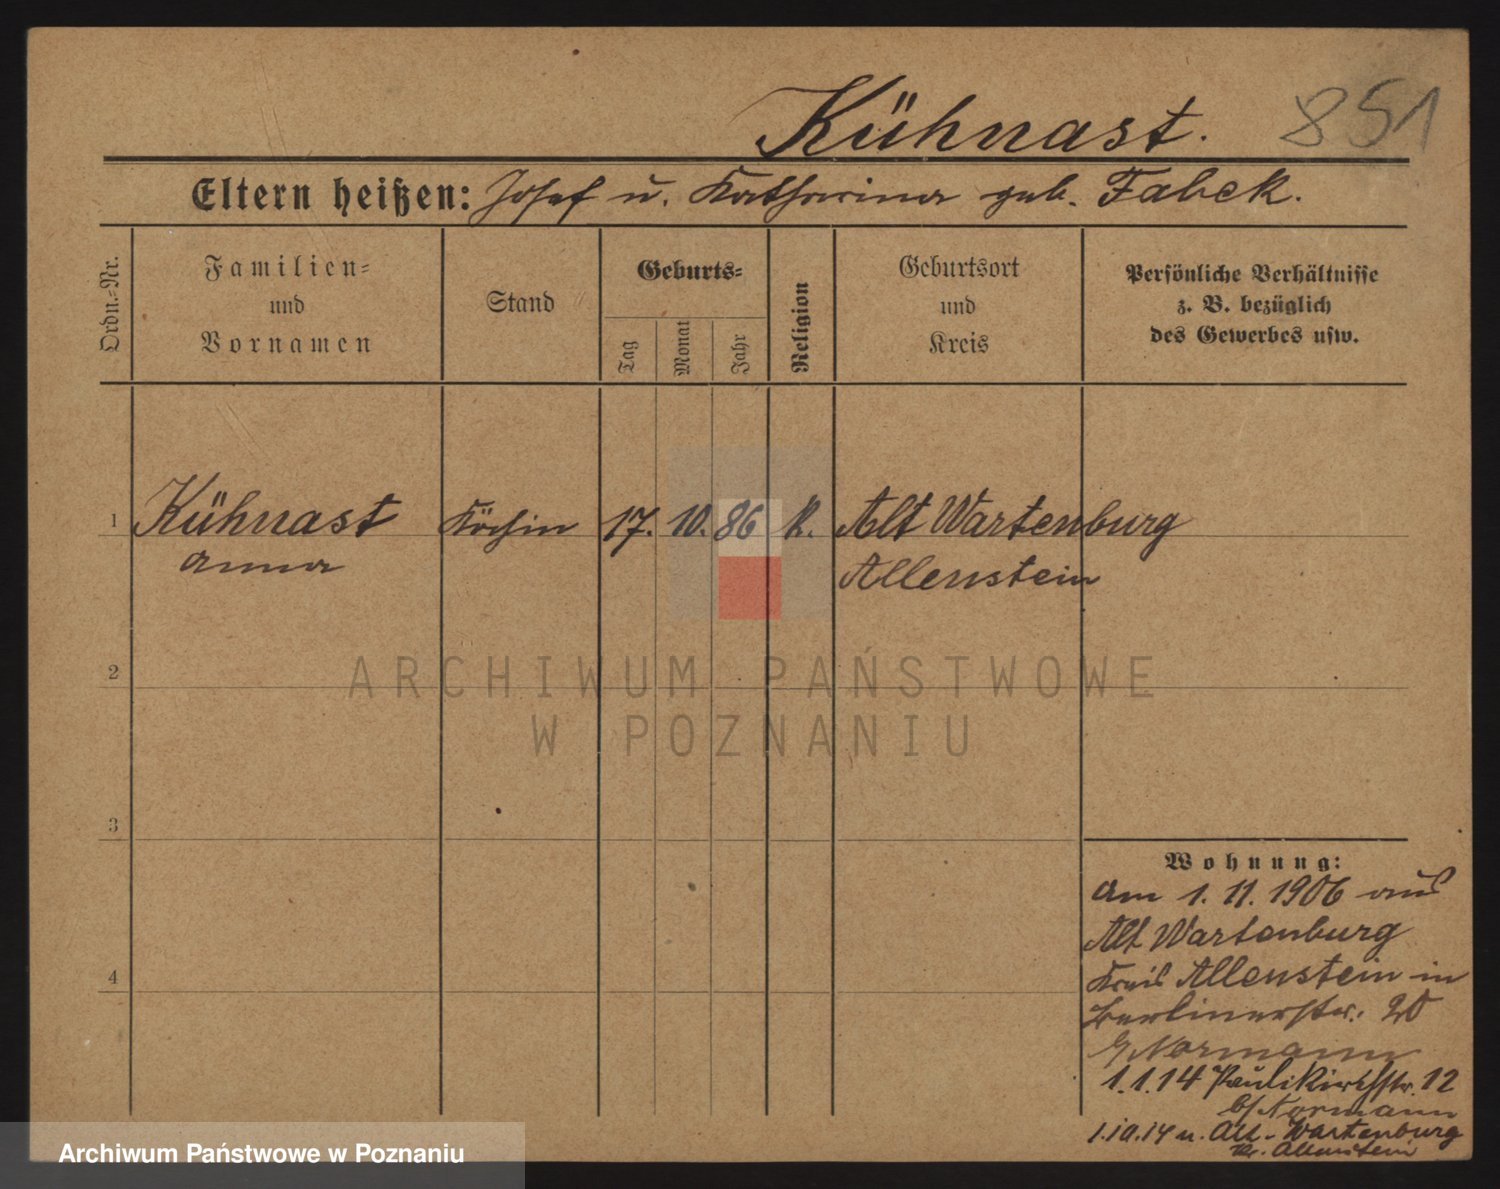 Kühnast. 851
Eltern heißen: Josef u. Katharina geb. Fabek.
Ordn.-Nr.
Familien-
und
Vornamen
Stand
Geburts-
Tag
Monat
Jahr
Religion
Geburtsort
und
Kreis
Persönliche Verhältnisse
z. B. bezüglich
des Gewerbes usw.
1 Kühnast Köchin 17. 10. 86 k. Alt Wartenburg
Anna Allenstein
2
3
4
Wohnung:
Am 1. 11. 1906 aus
Alt Wartenburg
Kreis Allenstein in
Berlinerstr. 20
b/Normann
1.1.14 Paulikirchstr. 12
b/Normann
1.10.14 n. Alt-Wartenburg
Kr. Allenstein
ARCHIWUM PAŃSTWOWE
W POZNANIU
Archiwum Państwowe w Poznaniu